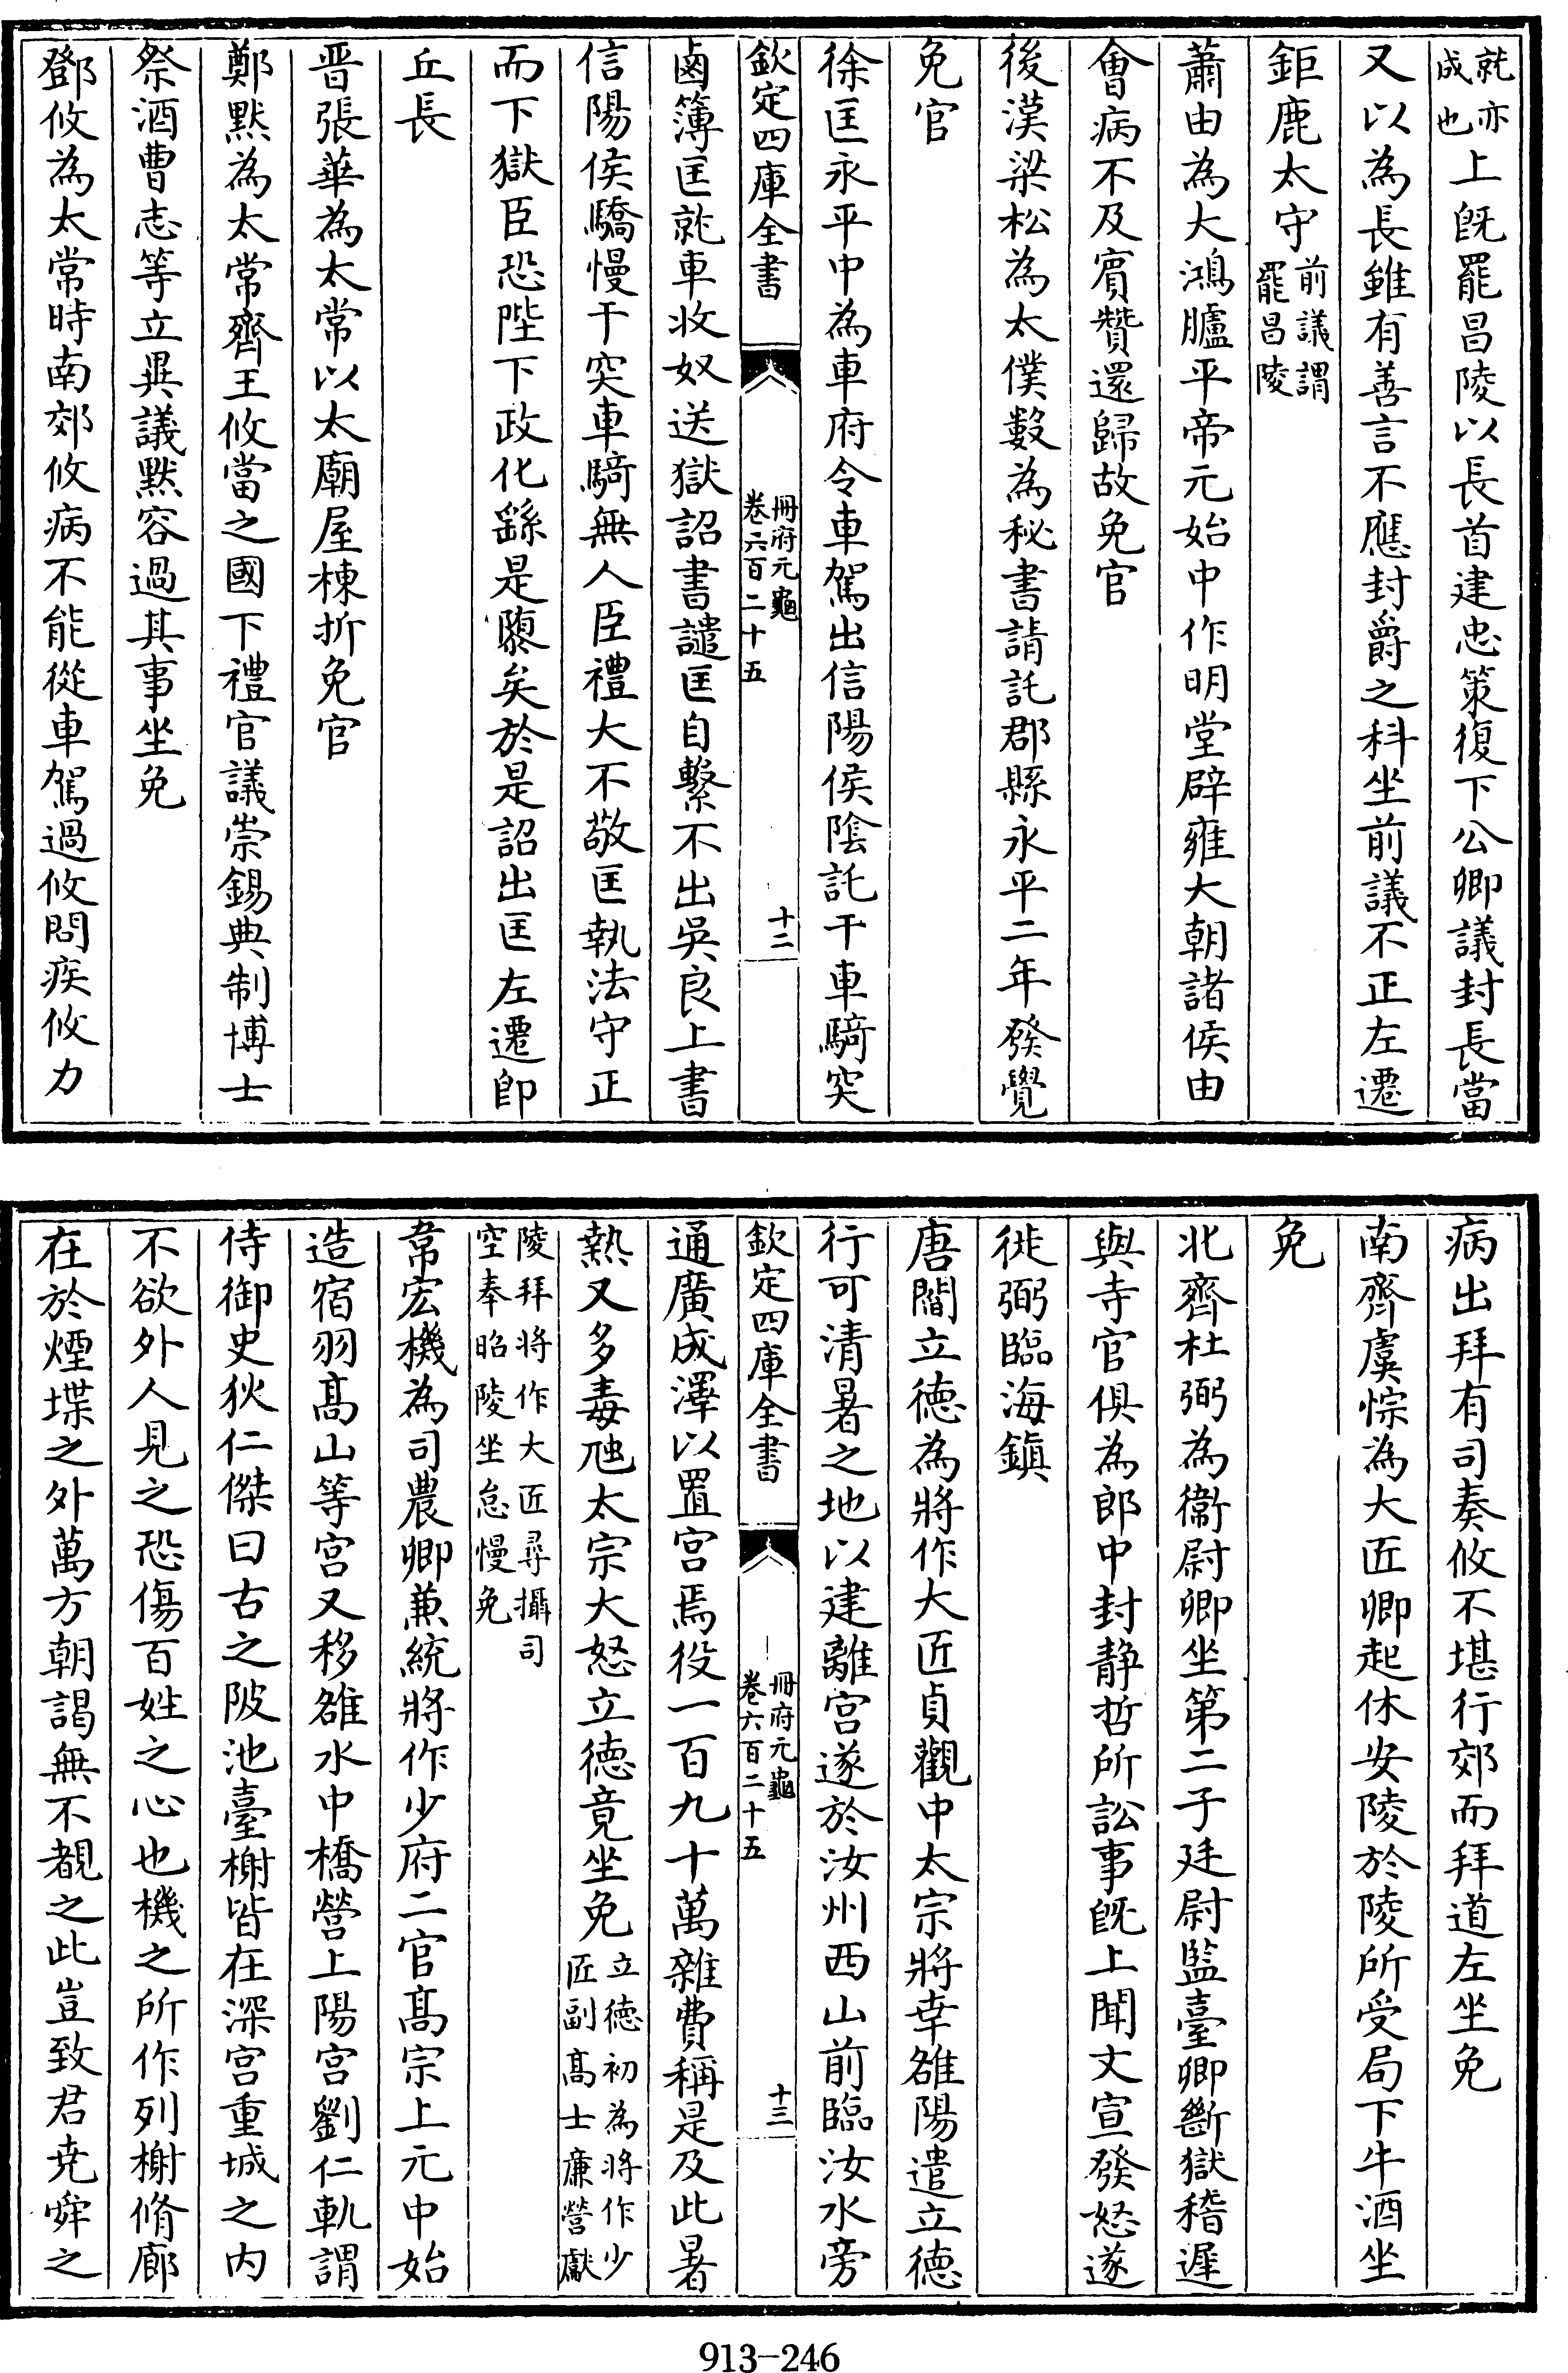 就亦成也上旣罷昌陵以長首建忠策復下公卿議封長當
又以為長雖有善言不應封爵之科坐前議不正左遷
鉅鹿太守前議謂罷昌陵
蕭由為大鴻臚平帝元始中作明堂辟雍大朝諸侯由
會病不及賓贊還歸故免官
後漢梁松為太僕數為秘書請託郡縣永平二年發覺
免官
徐匡永平中為車府令車駕出信陽侯陰託干車騎突
欽定四庫全書
冊府元龜
卷六百二十五
十二
鹵簿匡就車收奴送獄詔書譴匡自繫不出吳良上書
信陽侯驕慢干突車騎無人臣禮大不敬匡執法守正
而下獄臣恐陛下政化繇是隳矣於是詔出匡左遷即
丘長
晉張華為太常以太廟屋棟折免官
鄭默為太常齊王攸當之國下禮官議崇錫典制博士
祭酒曹志等立異議默容過其事坐免
鄧攸為太常時南郊攸病不能從車駕過攸問疾攸力
病出拜有司奏攸不堪行郊而拜道左坐免
南齊虞悰為大匠卿起休安陵於陵所受局下牛酒坐
免
北齊杜弼為衞尉卿坐第二子廷尉監臺卿斷獄稽遲
與寺官俱為郎中封静哲所訟事旣上聞文宣發怒遂
徙弼臨海鎮
唐閻立德為將作大匠貞觀中太宗將幸雒陽遣立德
行可清暑之地以建離宮遂於汝州西山前臨汝水旁
欽定四庫全書
冊府元龜
卷六百二十五
十三
通廣成澤以置宮焉役一百九十萬雜費稱是及此暑
熱又多毒虵太宗大怒立德竟坐免立德初為將作少匠副髙士廉營獻
陵拜將作大匠尋攝司空奉昭陵坐怠慢免
韋宏機為司農卿兼統將作少府二官髙宗上元中始
造宿羽髙山等宮又移雒水中橋營上陽宮劉仁軌謂
侍御史狄仁傑曰古之陂池臺榭皆在深宮重城之内
不欲外人見之恐傷百姓之心也機之所作列榭脩廊
在於煙堞之外萬方朝謁無不覩之此豈致君堯舜之
913-246